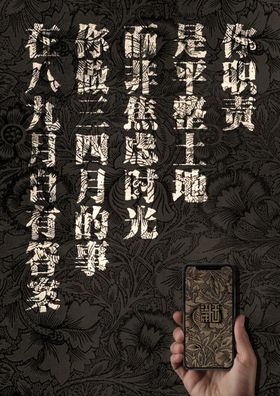 你职责
是平整土地
而非焦虑时光
你做三四月的事
在八九月自有答案